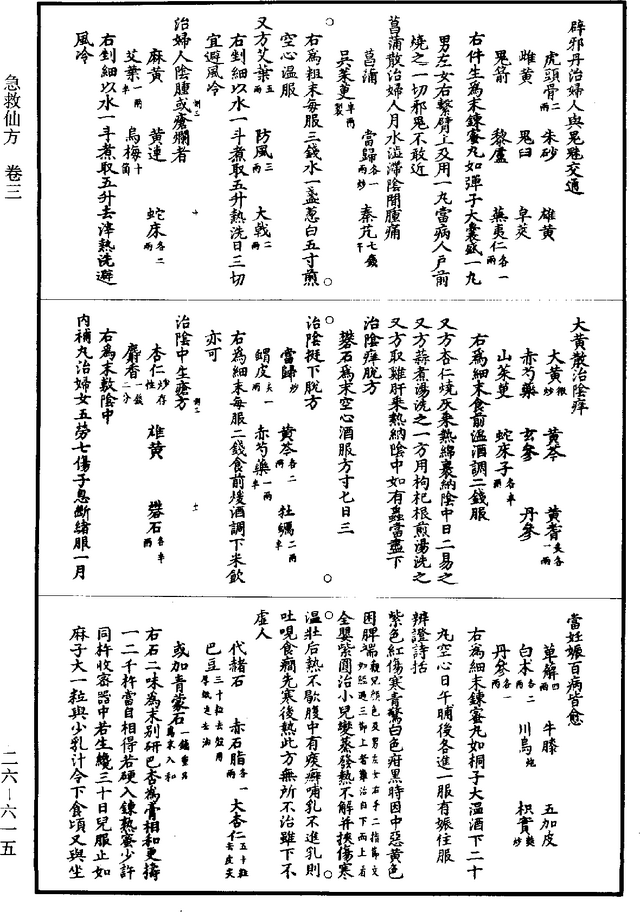 急救仙方 卷三
辟邪丹治婦人與鬼魅交通
虎頭骨二兩 朱砂 雄黃
雌黃 鬼臼 皁莢
鬼箭 黎蘆 蕪夷仁各一兩
右件生為末鍊蜜丸如彈子大囊盛一丸
男左女右繫臂上及用一丸當病人戸前
燒之一切邪鬼不敢近
菖蒲散治婦人月水澁滯陰間腫痛
菖蒲 當歸各一兩炒 秦艽七錢半
吳茱萸半兩製
右為粗末每服三錢水一盞葱白五寸煎
空心温服
又方艾葉五兩 防風三兩 大戟二兩
右剉細以水一斗煮取五升熱洗日三切
宜避風冷
治婦人陰腫或瘡爛者
麻黃 黃連 蛇床各二兩
艾葉一兩半 烏梅十箇
右剉細以水一斗煮取五升去滓熱洗避
風冷
大黃散治陰痒
大黃微炒 黃芩 黃耆炙各一兩
赤芍藥 玄參 丹參
山茱萸 蛇床子各半兩
右為細末食前温酒調二錢服
又方杏仁燒灰乘熱綿裹納陰中日二易之
又方蒜煮湯洗之一方用枸杞根煎湯洗之
又方取雞肝乘熱納陰中如有蟲當盡下
治陰痒脫方
礬石為末空心酒服方寸七日三
治陰挺下脫方
當歸炒 黃芩各二兩 牡蠣二兩半
蝟皮一兩炙 赤芍藥一兩半
右為細末每服二錢食前煖酒調下米飲
亦可
治陰中生瘡方
杏仁炒存性 雄黃 礬石各半兩
麝香一錢二分
右為末敷陰中
内補丸治婦女五勞七傷子息斷緒服一月
當妊娠百病皆愈
萆解四兩 牛膝 五加皮
白朮各二兩 川烏炮 枳實麩炒
丹參各一兩
右為細末鍊蜜丸如桐子大温酒下二十
丸空心日午晡後各進一服有娠住服
辨證詩括
紫色紅傷寒青驚白色疳黑時因中惡黃色
困脾端
全嬰紫圓治小兒變蒸發熱不解并挾傷寒
温壯后熱不歇腹中有痰癖哺乳不進乳則
吐哯食癎先寒後熱此方無所不治雖下不
虛人
代赭石 赤石脂各一兩 大杏仁五十粒去皮尖
巴豆三十粒去殼用
或加青蒙石
右石二味為末别研巴杏為膏相和更擣
一二千杵當自相得若硬入鍊熟蜜少許
同杵收密器中若生纔三十日兒服止如
麻子大一粒與少乳汁令下食頃又與坐
二六—六一五